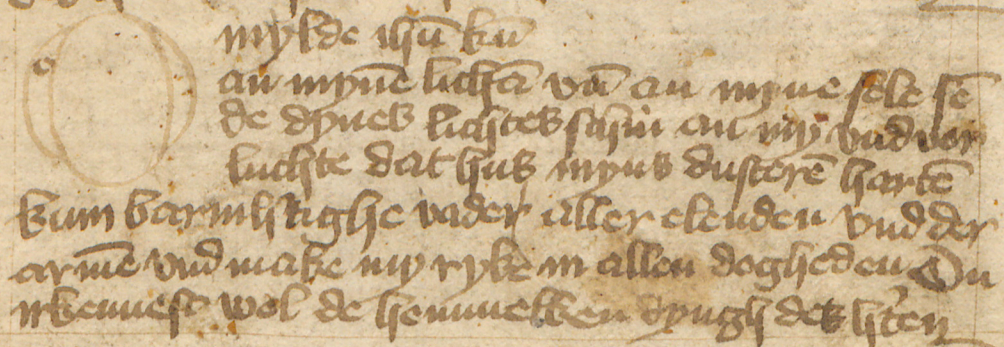 O mylde ihū kū
an mynē lichā vñ an myne sele sē
de dynes lichtes schin an my vnd vor
luchte dat hus myns dusterē hartē
kum barmhtighe vader aller elenden vnd der
armē vnd make my ryke in allen dogheden Du
irkennest wol de hemmelken dyngh des hten